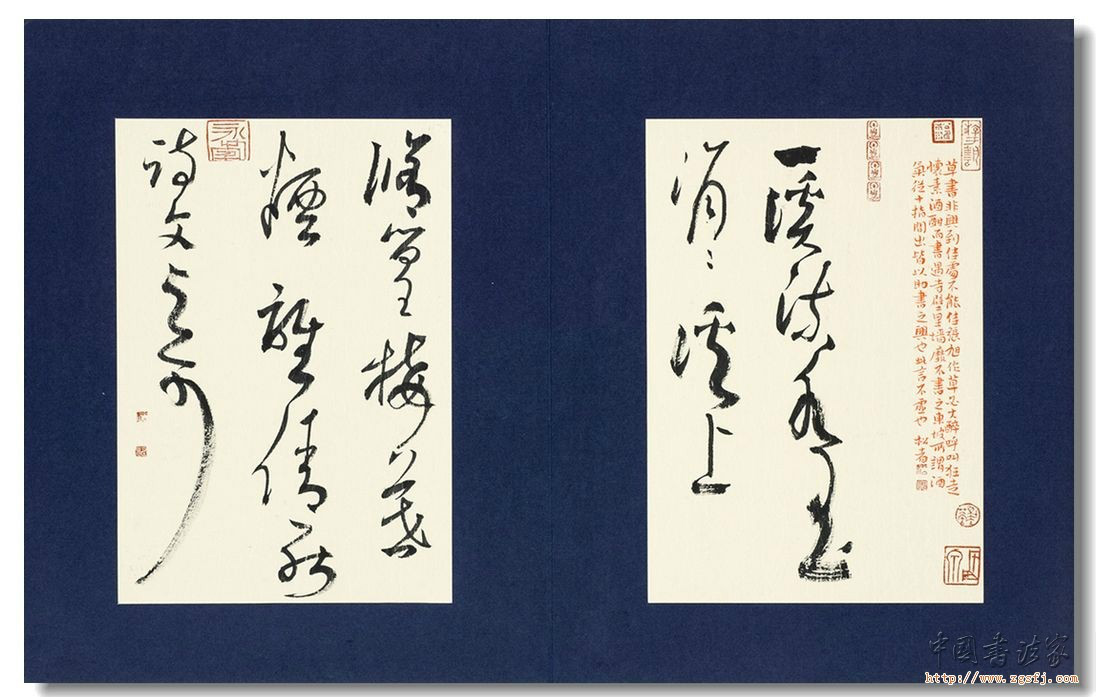 草書非興到佳處不能佳張旭作草必大醉呼叫狂走
懷素酒酣而書遇寺壁里墻靡不書之東坡所謂酒
氣從十指間出皆以助書之興也此言不虛也
一溪流水玉
涓〻溪上
修篁接暮
煙誰倩能
詩文與可
中國書法家
http://www.zgsfj.com